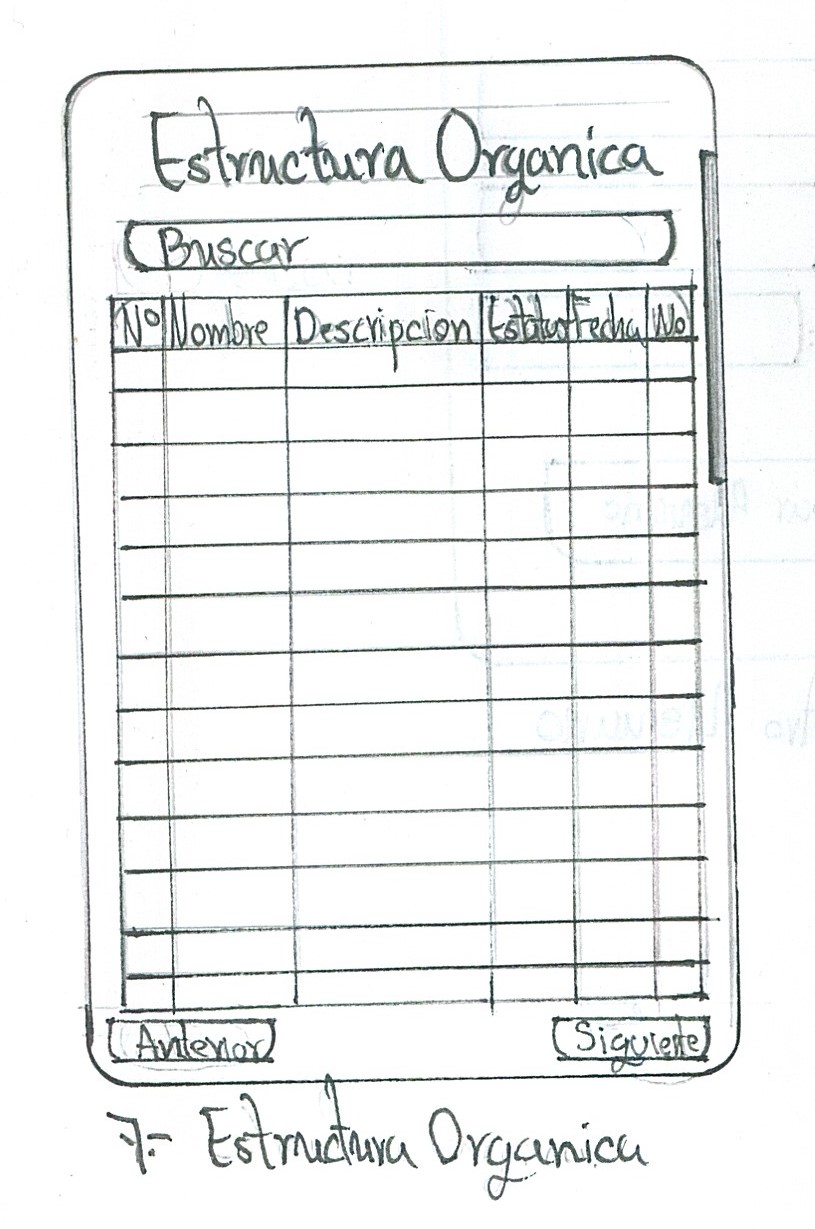 Estructura Organica
Buscar
Nº Nombre Descripcion Estatus Fecha No
Anterior Siguiente
7.- Estructura Organica